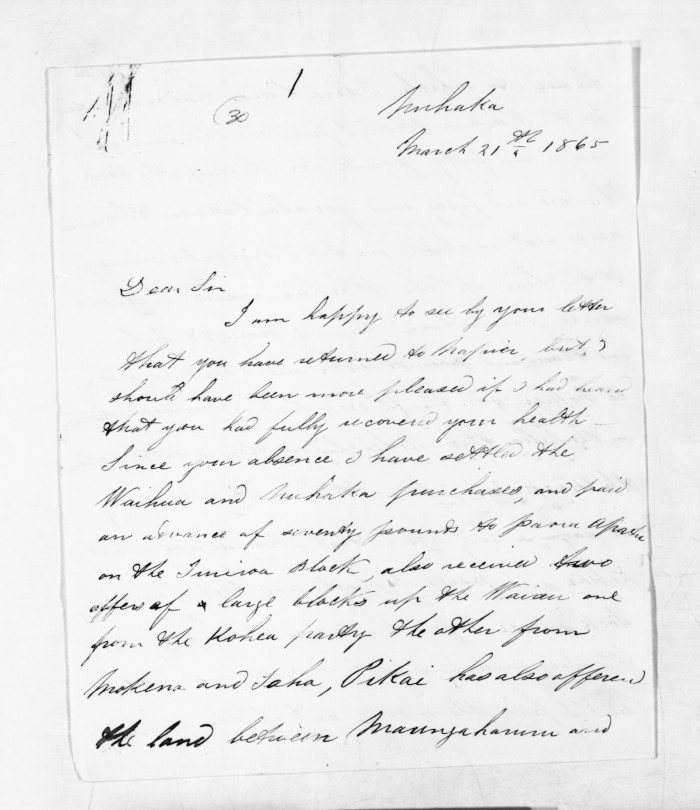 1
30
Nuhaka
March 21st 1865
Dear Sir
I am happy to see by your letter
that you have returned to Napier, but I
should have been more pleased if I had heard
that you had fully recovered your health —
Since your absence I have settled the
Waihua and Nuhaka purchases, and paid
an advance of seventy pounds to Paora Apatu
on the Tuiroa Block, also received two
offers of large blocks up the Wairau one
from the Kohea party the other from
Mokena and Taha, Pikai has also offered
the land between Maungaharuru and